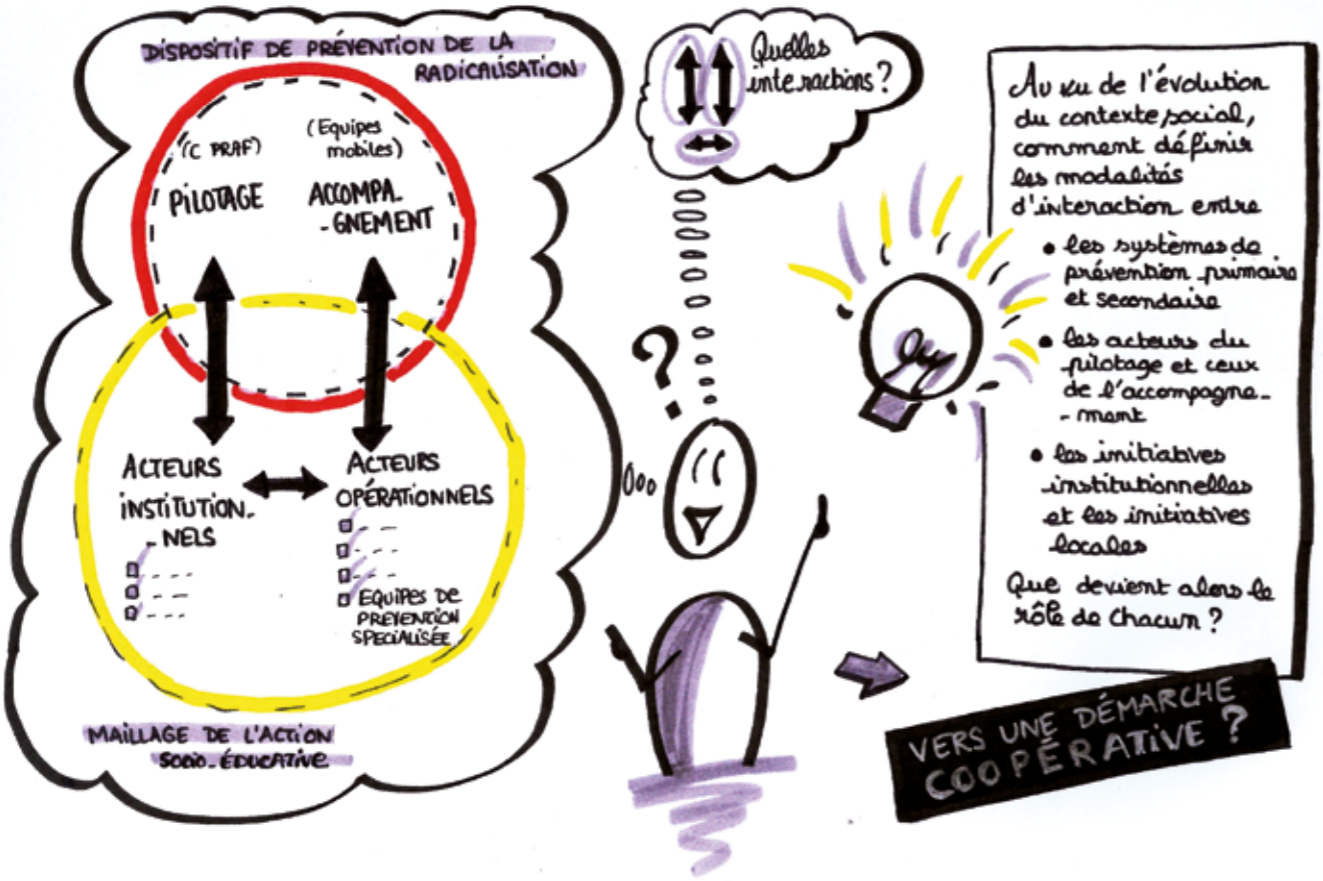 DISPOSITIF DE PRÉVENTION DE LA
RADICALISATION
(C PRAF)
PILOTAGE
(Equipes
mobiles)
ACCOMPA-
-GNEMENT
ACTEURS
INSTITUTION-
-NELS
ACTEURS
OPÉRATIONNELS
EQUIPES DE
PREVENTION
SPECIALISÉE
MAILLAGE DE L'ACTION
SOCIO-ÉDUCATIVE
Quelles
interactions ?
?
Au vu de l'évolution
du contexte social,
comment définir
les modalités
d'interaction entre
• les systèmes de
prévention primaire
et secondaire
• les acteurs du
pilotage et ceux
de l'accompagne-
-ment
• les initiatives
institutionnelles
et les initiatives
locales
Que devient alors le
rôle de chacun ?
VERS UNE DÉMARCHE
COOPÉRATIVE ?